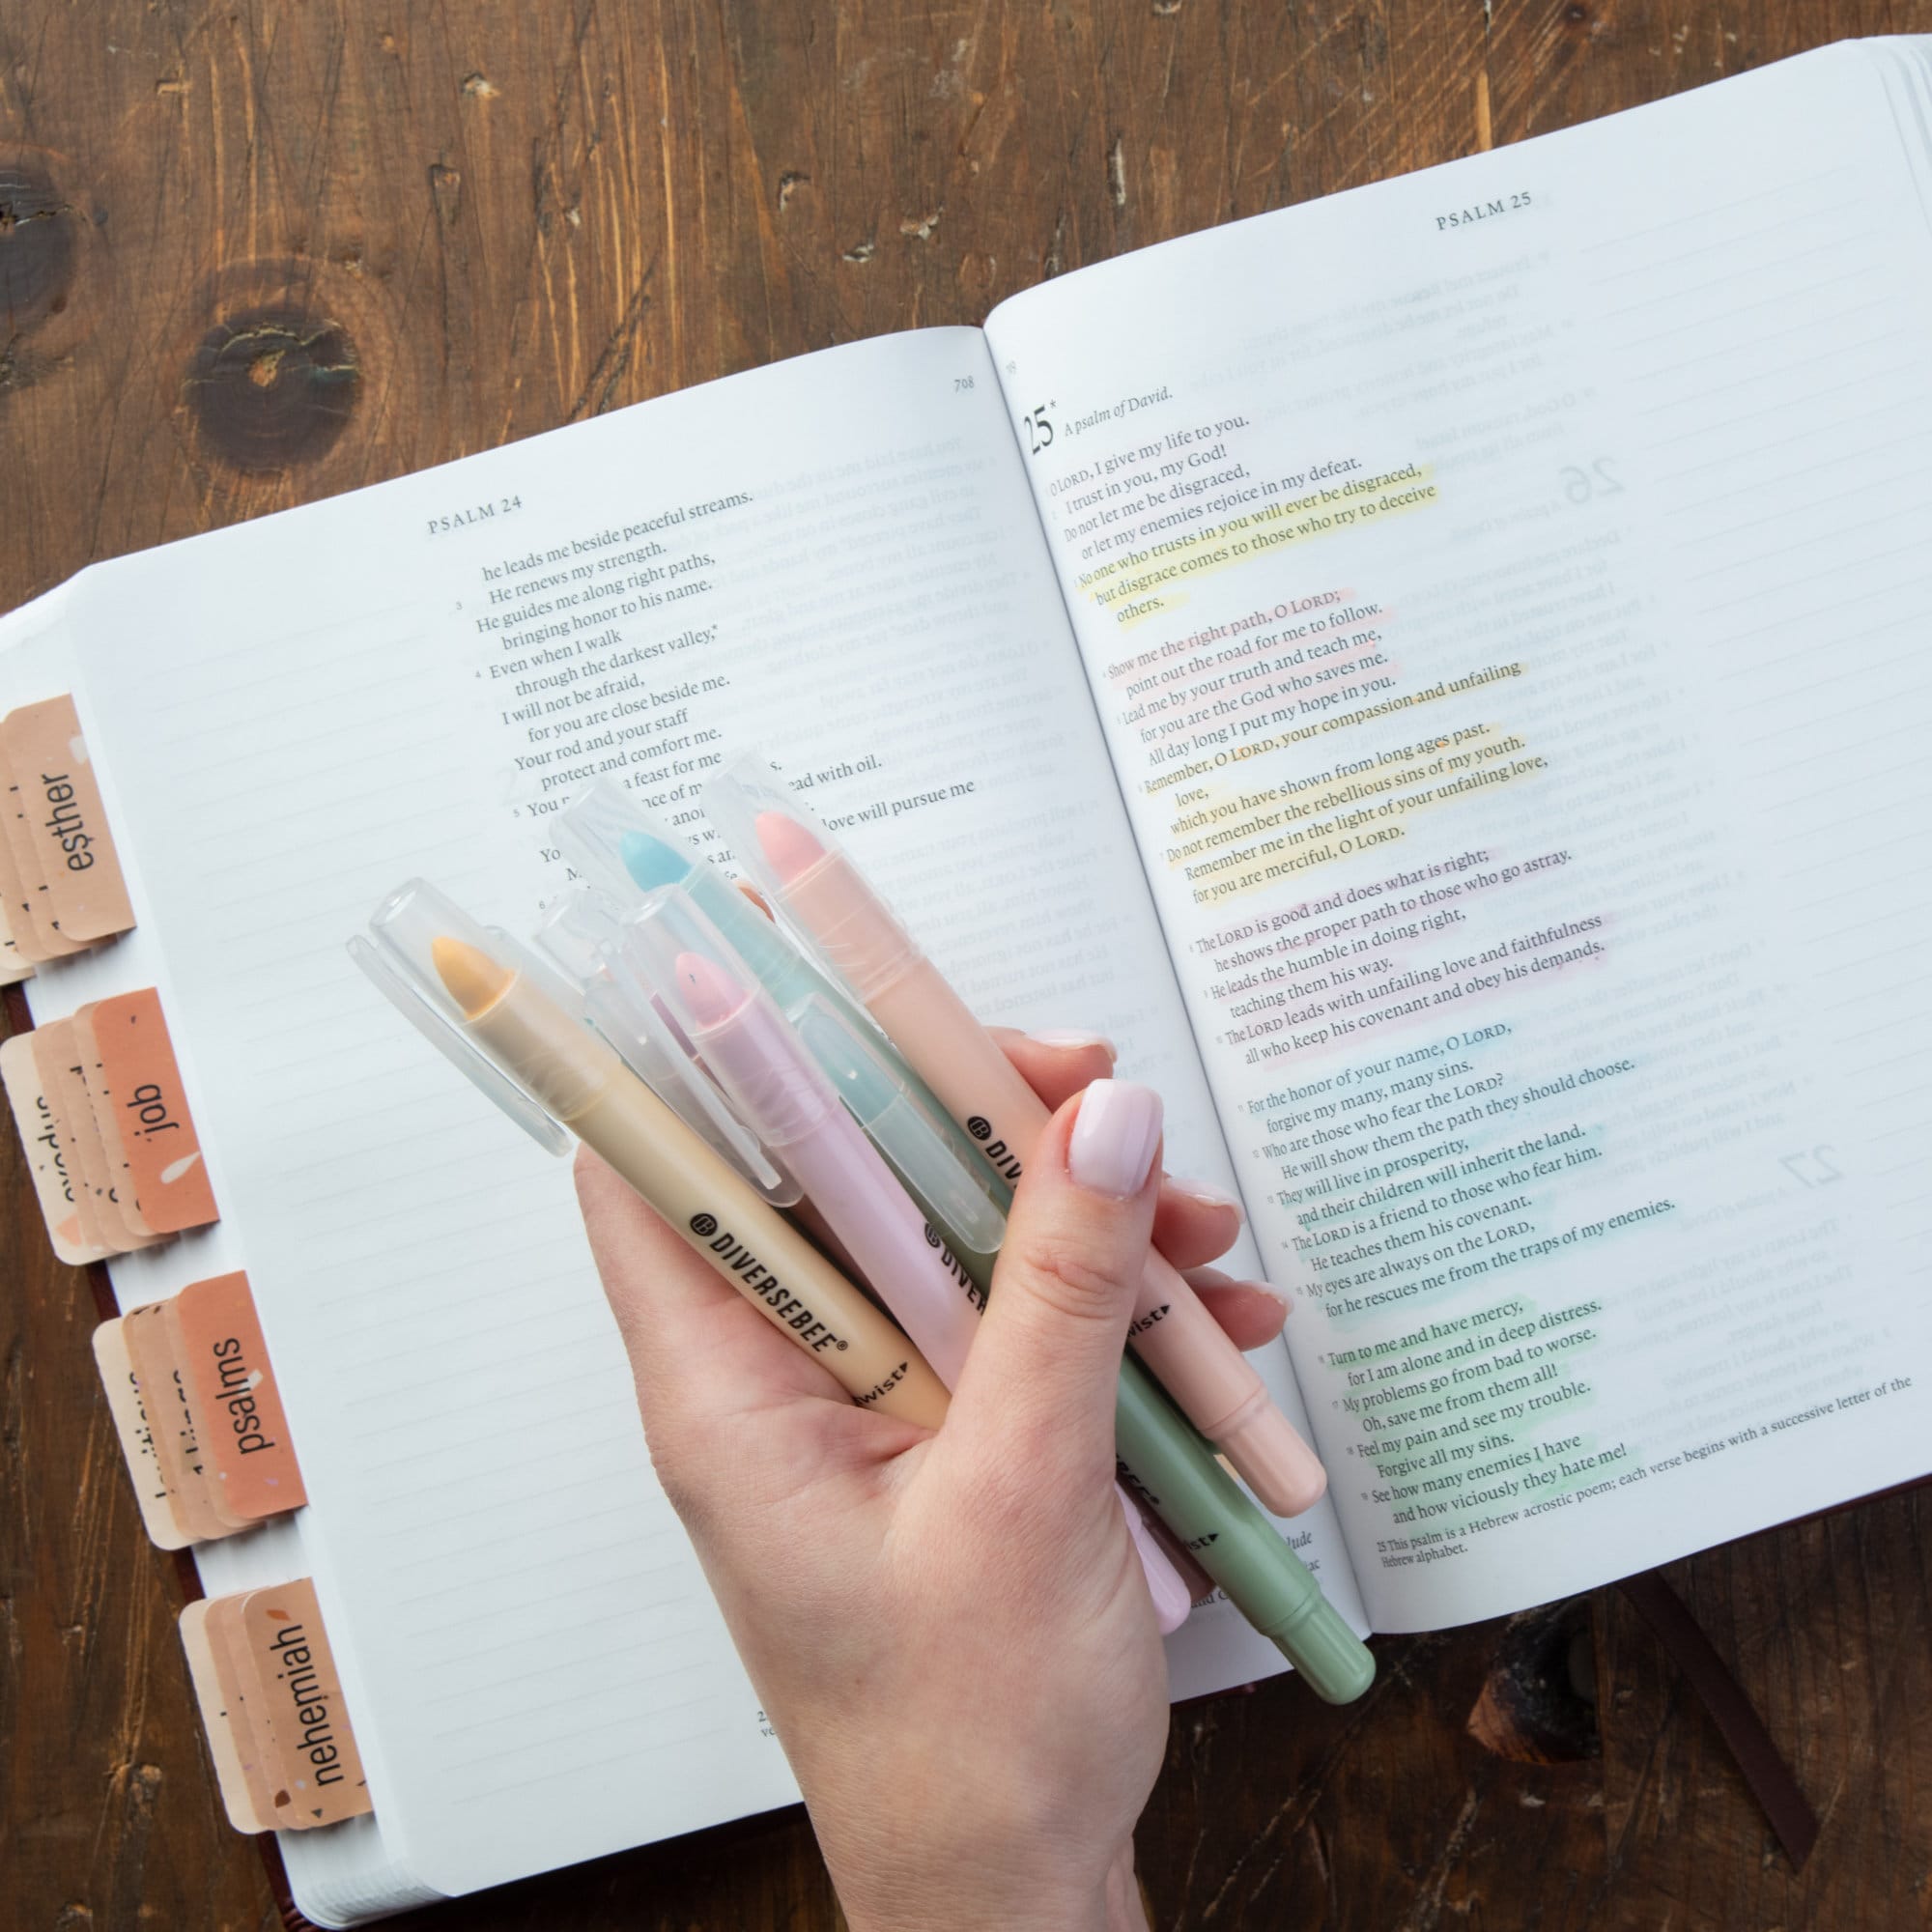 PSALM 24
708
he leads me beside peaceful streams.
3 He renews my strength.
He guides me along right paths,
bringing honor to his name.
4 Even when I walk
through the darkest valley,*
I will not be afraid,
for you are close beside me.
Your rod and your staff
protect and comfort me.
5 You a feast for me
ead with oil.
6
love will pursue me
PSALM 25
25* A psalm of David.
O LORD, I give my life to you.
2 I trust in you, my God!
Do not let me be disgraced,
or let my enemies rejoice in my defeat.
3 No one who trusts in you will ever be disgraced,
but disgrace comes to those who try to deceive
others.
4 Show me the right path, O LORD;
point out the road for me to follow.
5 Lead me by your truth and teach me,
for you are the God who saves me.
All day long I put my hope in you.
6 Remember, O LORD, your compassion and unfailing
love,
which you have shown from long ages past.
7 Do not remember the rebellious sins of my youth.
Remember me in the light of your unfailing love,
for you are merciful, O LORD.
8 The LORD is good and does what is right;
he shows the proper path to those who go astray.
9 He leads the humble in doing right,
teaching them his way.
10 The LORD leads with unfailing love and faithfulness
all who keep his covenant and obey his demands.
11 For the honor of your name, O LORD,
forgive my many, many sins.
12 Who are those who fear the LORD?
He will show them the path they should choose.
13 They will live in prosperity,
and their children will inherit the land.
14 The LORD is a friend to those who fear him.
He teaches them his covenant.
15 My eyes are always on the LORD,
for he rescues me from the traps of my enemies.
16 Turn to me and have mercy,
for I am alone and in deep distress.
17 My problems go from bad to worse.
Oh, save me from them all!
18 Feel my pain and see my trouble.
Forgive all my sins.
19 See how many enemies I have
and how viciously they hate me!
25 This psalm is a Hebrew acrostic poem; each verse begins with a successive letter of the
Hebrew alphabet.
esther
job
psalms
nehemiah
DIVERSEBEE®
twist